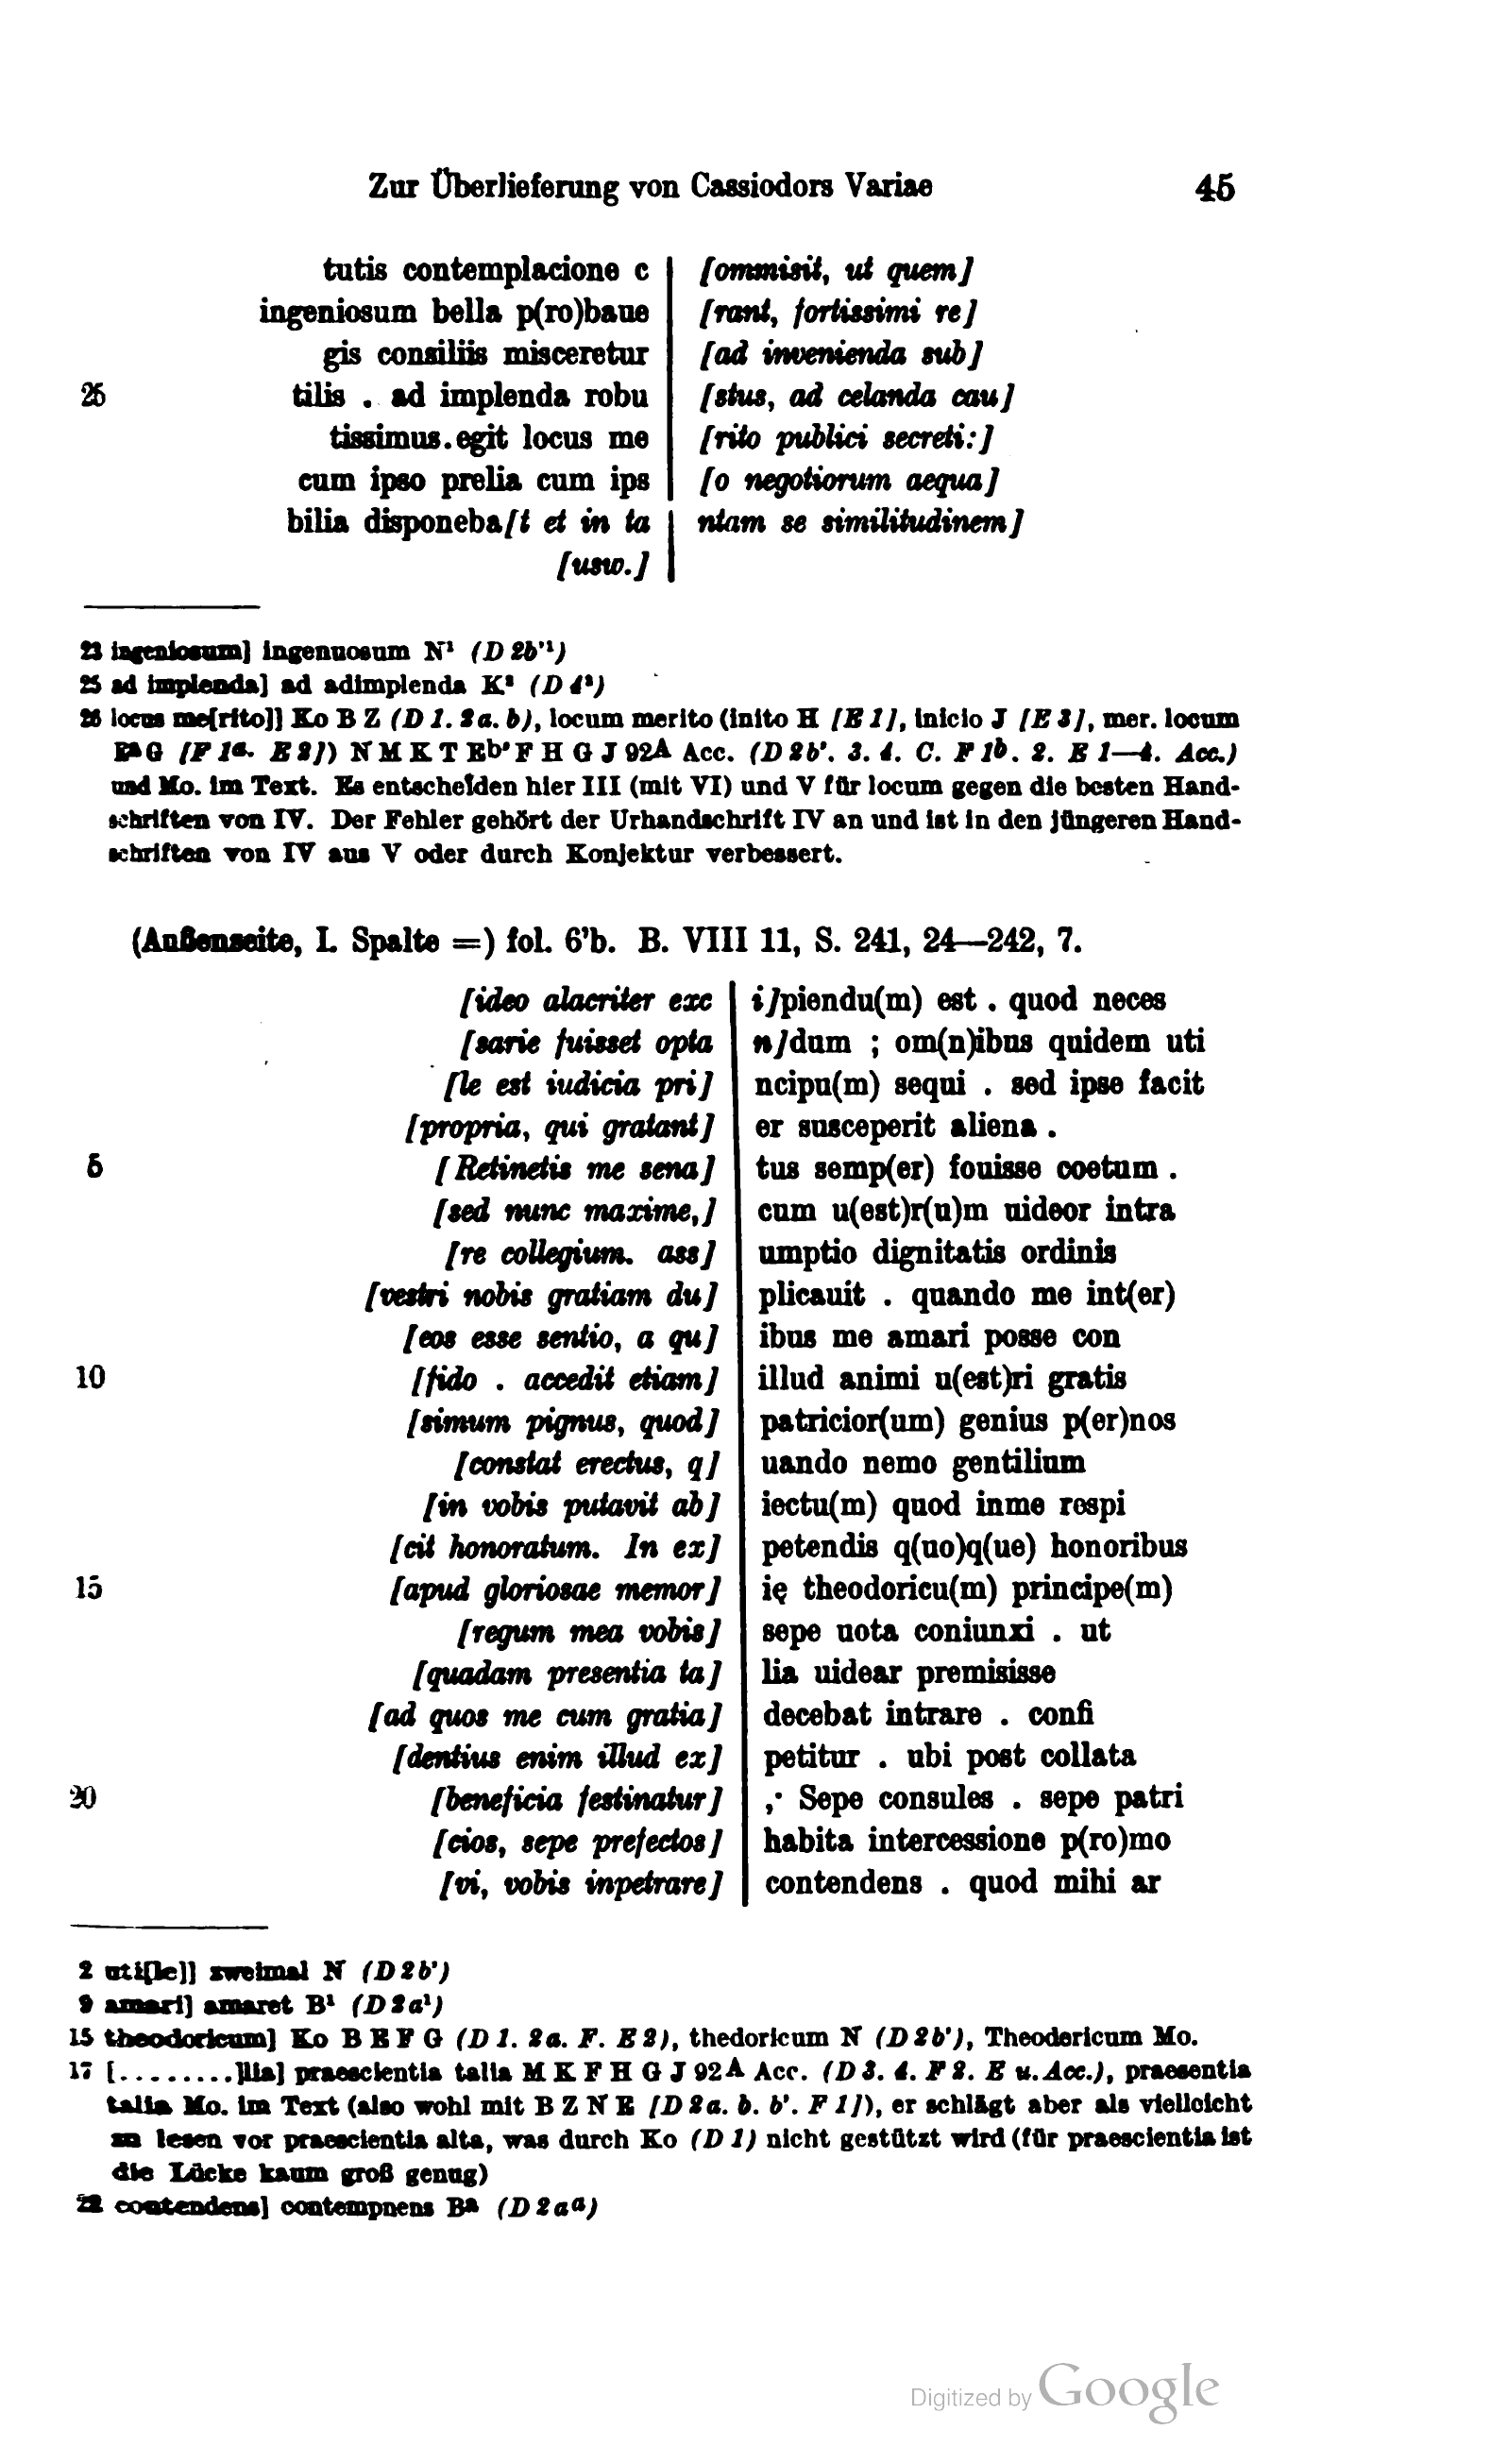 Zur Überlieferung von Cassiodors Variae 45
tutis contemplacione c [ommisit, ut quem]
ingeniosum bella p(ro)baue [rant, fortissimi re]
gis consiliis misceretur [ad invenienda sub]
25 tilis . ad implenda robu [stus, ad celanda cau]
tissimus.egit locus me [rito publici secreti:]
cum ipso prelia cum ips [o negotiorum aequa]
bilia disponeba[t et in ta ntam se similitudinem]
[usw.]
23 ingeniosum] ingenuosum N¹ (D 2b'¹)
25 ad implenda] ad adimplenda K² (D 4²)
26 locus me[rito]] Ko B Z (D 1. 2a. b), locum merito (inito H [E 1], inicio J [E 3], mer. locum
EᵃG [F 1ᵃ. E 2]) N M K T Eᵇ'F H G J 92A Acc. (D 2b'. 3. 4. C. F 1ᵇ. 2. E 1—4. Acc.)
und Mo. im Text. Es entscheidet hier III (mit VI) und V für locum gegen die besten Hand-
schriften von IV. Der Fehler gehört der Urhandschrift IV an und ist in den jüngeren Hand-
schriften von IV aus V oder durch Konjektur verbessert.
(Außenseite, I. Spalte =) fol. 6'b. B. VIII 11, S. 241, 24—242, 7.
[ideo alacriter exc i]piendu(m) est . quod neces
[sarie fuisset opta n]dum ; om(n)ibus quidem uti
[le est iudicia pri] ncipu(m) sequi . sed ipse facit
[propria, qui gratant] er susceperit aliena .
5 [Retinetis me sena] tus semp(er) fouisse coetum .
[sed nunc maxime,] cum u(est)r(u)m uideor intra
[re collegium. ass] umptio dignitatis ordinis
[vestri nobis gratiam du] plicauit . quando me int(er)
[eos esse sentio, a qu] ibus me amari posse con
10 [fido . accedit etiam] illud animi u(est)ri gratis
[simum pignus, quod] patricior(um) genius p(er)nos
[constat erectus, q] uando nemo gentilium
[in vobis putavit ab] iectu(m) quod inme respi
[cit honoratum. In ex] petendis q(uo)q(ue) honoribus
15 [apud gloriosae memor] ię theodoricu(m) principe(m)
[regum mea vobis] sepe uota coniunxi . ut
[quadam presentia ta] lia uidear premisisse
[ad quos me cum gratia] decebat intrare . confi
[dentius enim illud ex] petitur . ubi post collata
20 [beneficia festinatur] ,· Sepe consules . sepe patri
[cios, sepe prefectos] habita intercessione p(ro)mo
[vi, vobis inpetrare] contendens . quod mihi ar
2 uti[le]] zweimal N (D 2b')
9 amari] amaret B¹ (D 2a¹)
15 theodoricum] Ko B E F G (D 1. 2a. F. E 2), thedoricum N (D 2b'), Theodericum Mo.
17 [.........]lia] praescientia talia M K F H G J 92A Acc. (D 3. 4. F 2. E u. Acc.), praesentia
talia Mo. im Text (also wohl mit B Z N E [D 2a. b. b'. F 1]), er schlägt aber als vielleicht
zu lesen vor praescientia alta, was durch Ko (D 1) nicht gestützt wird (für praescientia ist
die Lücke kaum groß genug)
22 contendens] contempnens Bᵃ (D 2aᵃ)
Digitized by Google